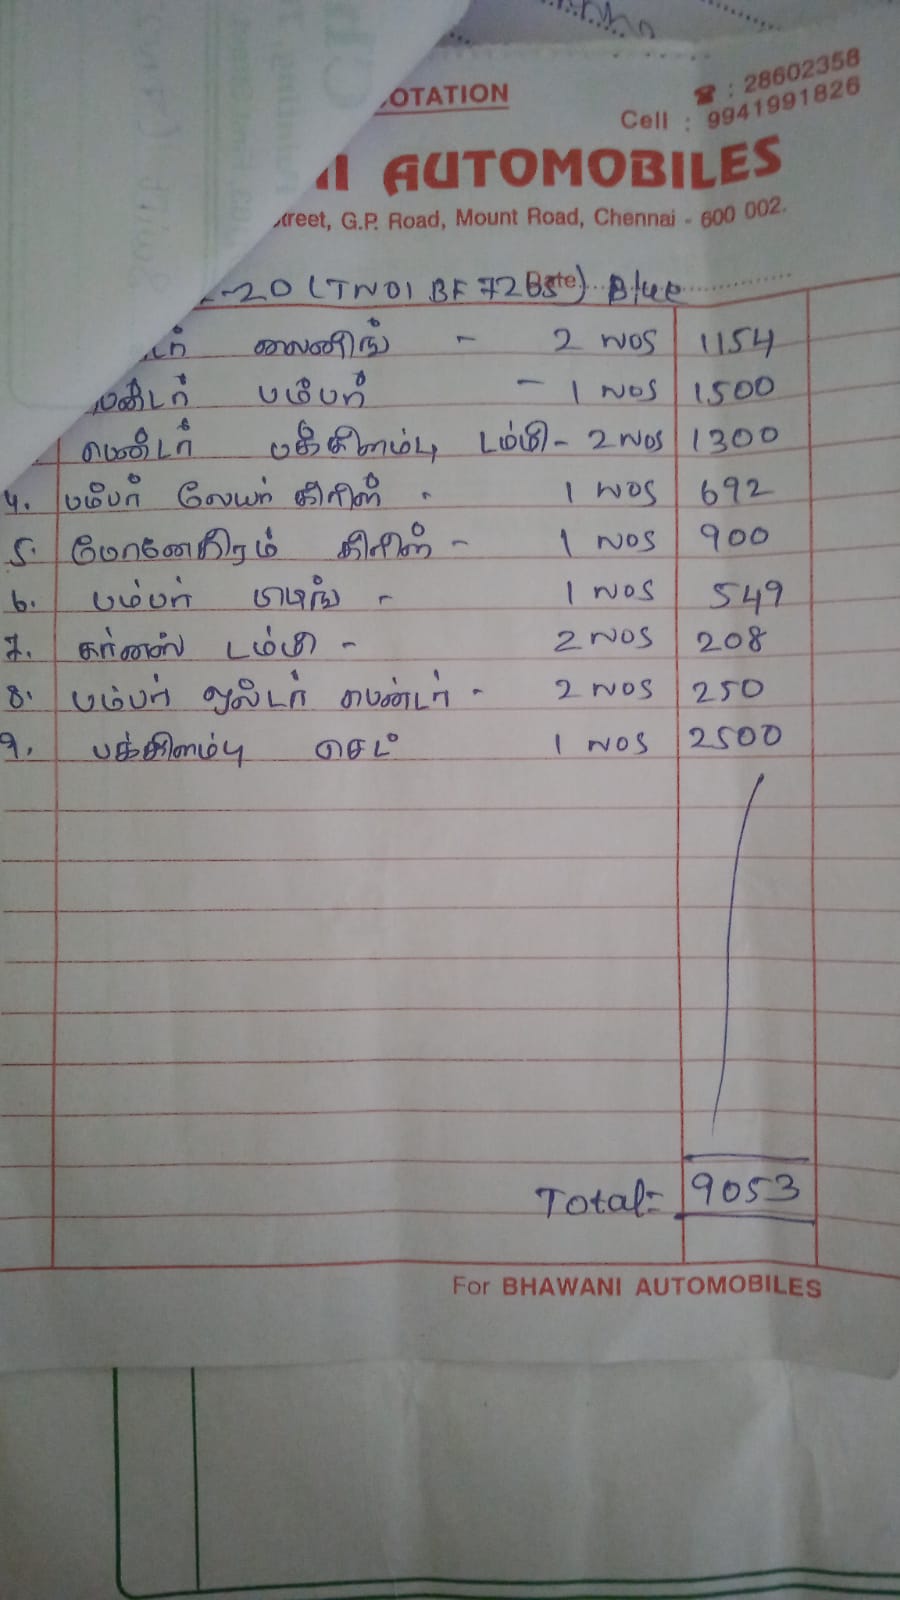 OTATION
☎ : 28602358
Cell : 9941991826
AUTOMOBILES
treet, G.P. Road, Mount Road, Chennai - 600 002.
-20 (TN01 BF 72 Blue
டர் லைனிங் - 2 NOS 1154
பம்பர் - 1 NOS 1500
பெண்டர் பக்கிளம்பு டம்மி - 2 NOS 1300
4. பம்பர் லேயர் கிரில் - 1 NOS 692
5. மோனோகிரம் கிரில் - 1 NOS 900
6. பம்பர் - 1 NOS 549
7. கார்னஸ் டம்மி - 2 NOS 208
8. பம்பர் பெண்டர் - 2 NOS 250
9. பக்கிளம்பு செட் 1 NOS 2500
Total= 9053
For BHAWANI AUTOMOBILES